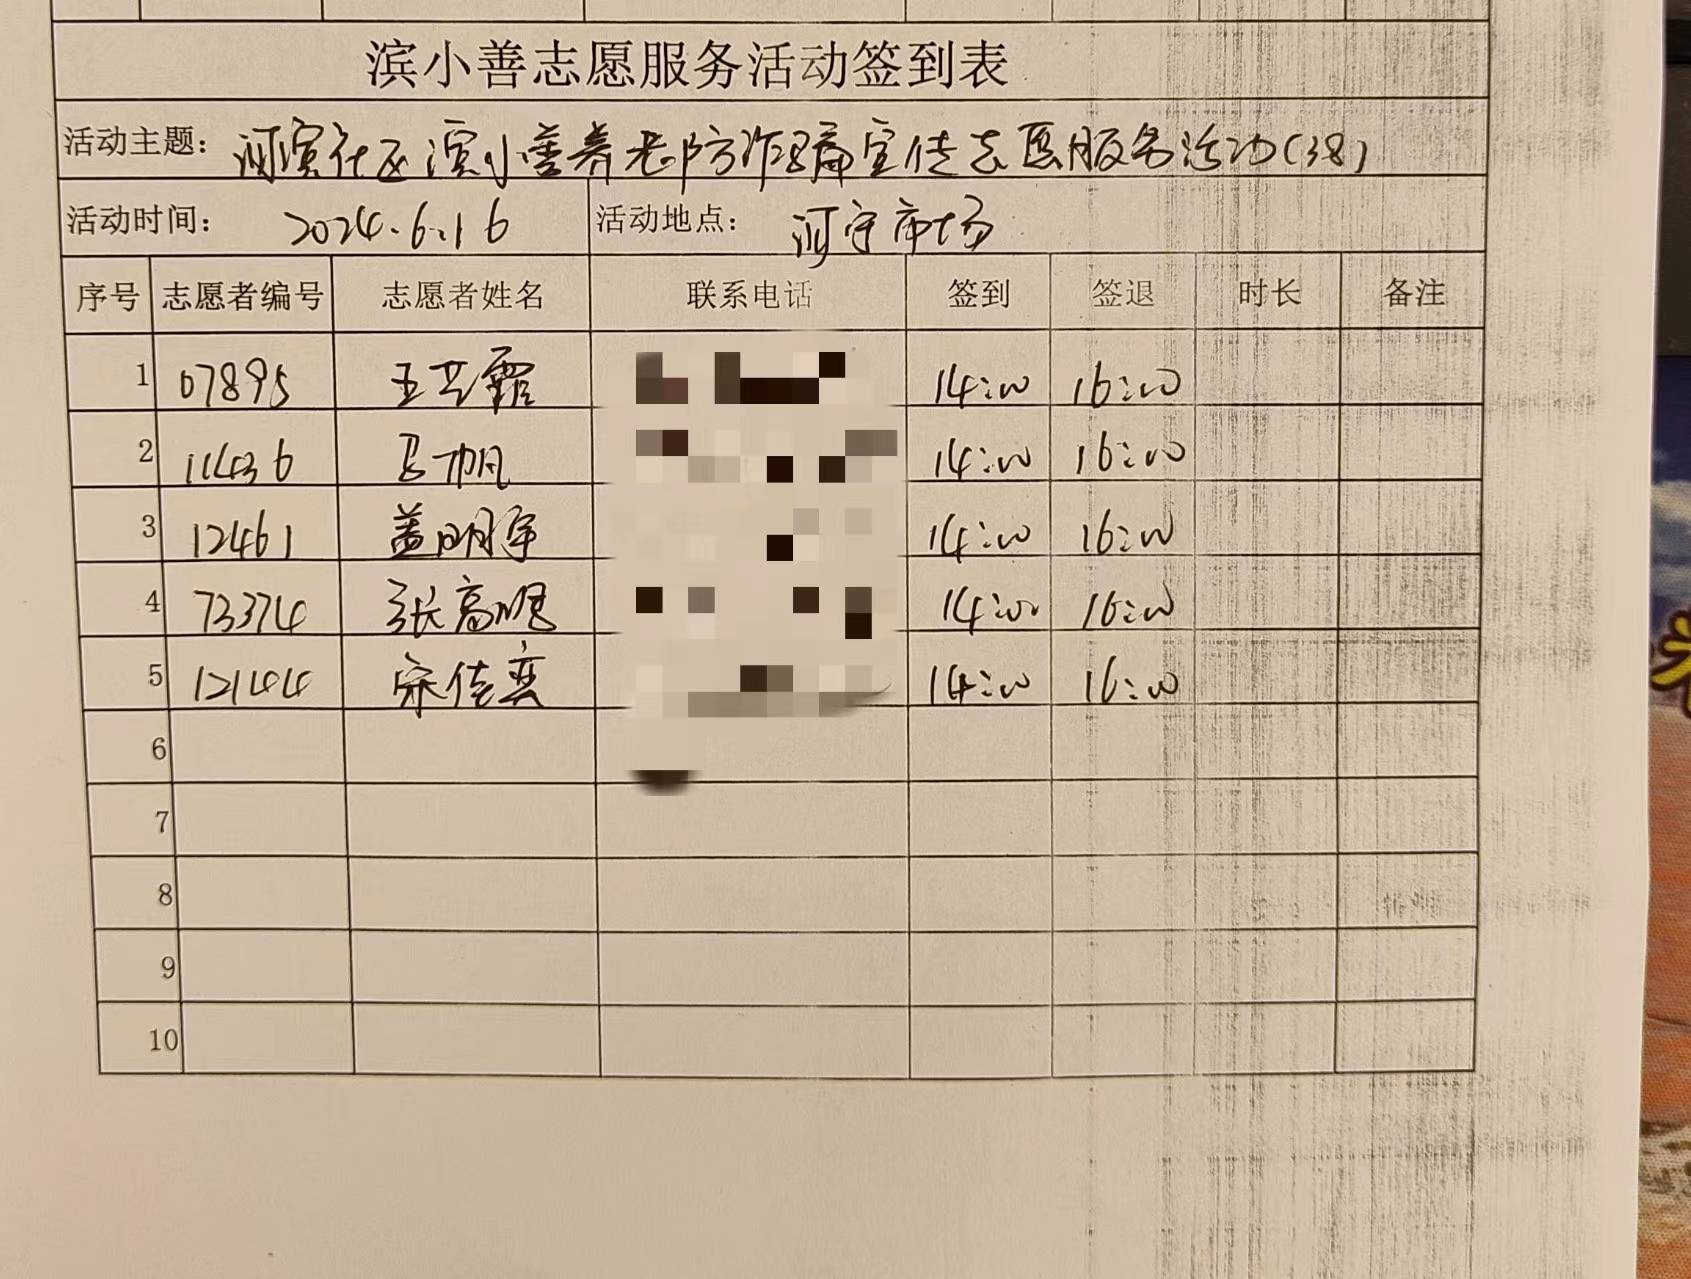 滨小善志愿服务活动签到表
活动主题: 河滨社区滨小善养老防诈骗宣传志愿服务活动(38)
活动时间: 2024.6.16 活动地点: 河宁市场
序号 志愿者编号 志愿者姓名 联系电话 签到 签退 时长 备注
1 07895 王艺霏 14:00 16:00
2 11436 马帆 14:00 16:00
3 12461 盖明宇 14:00 16:00
4 73374 张高 14:00 16:00
5 12144 宋佳奕 14:00 16:00
6
7
8
9
10